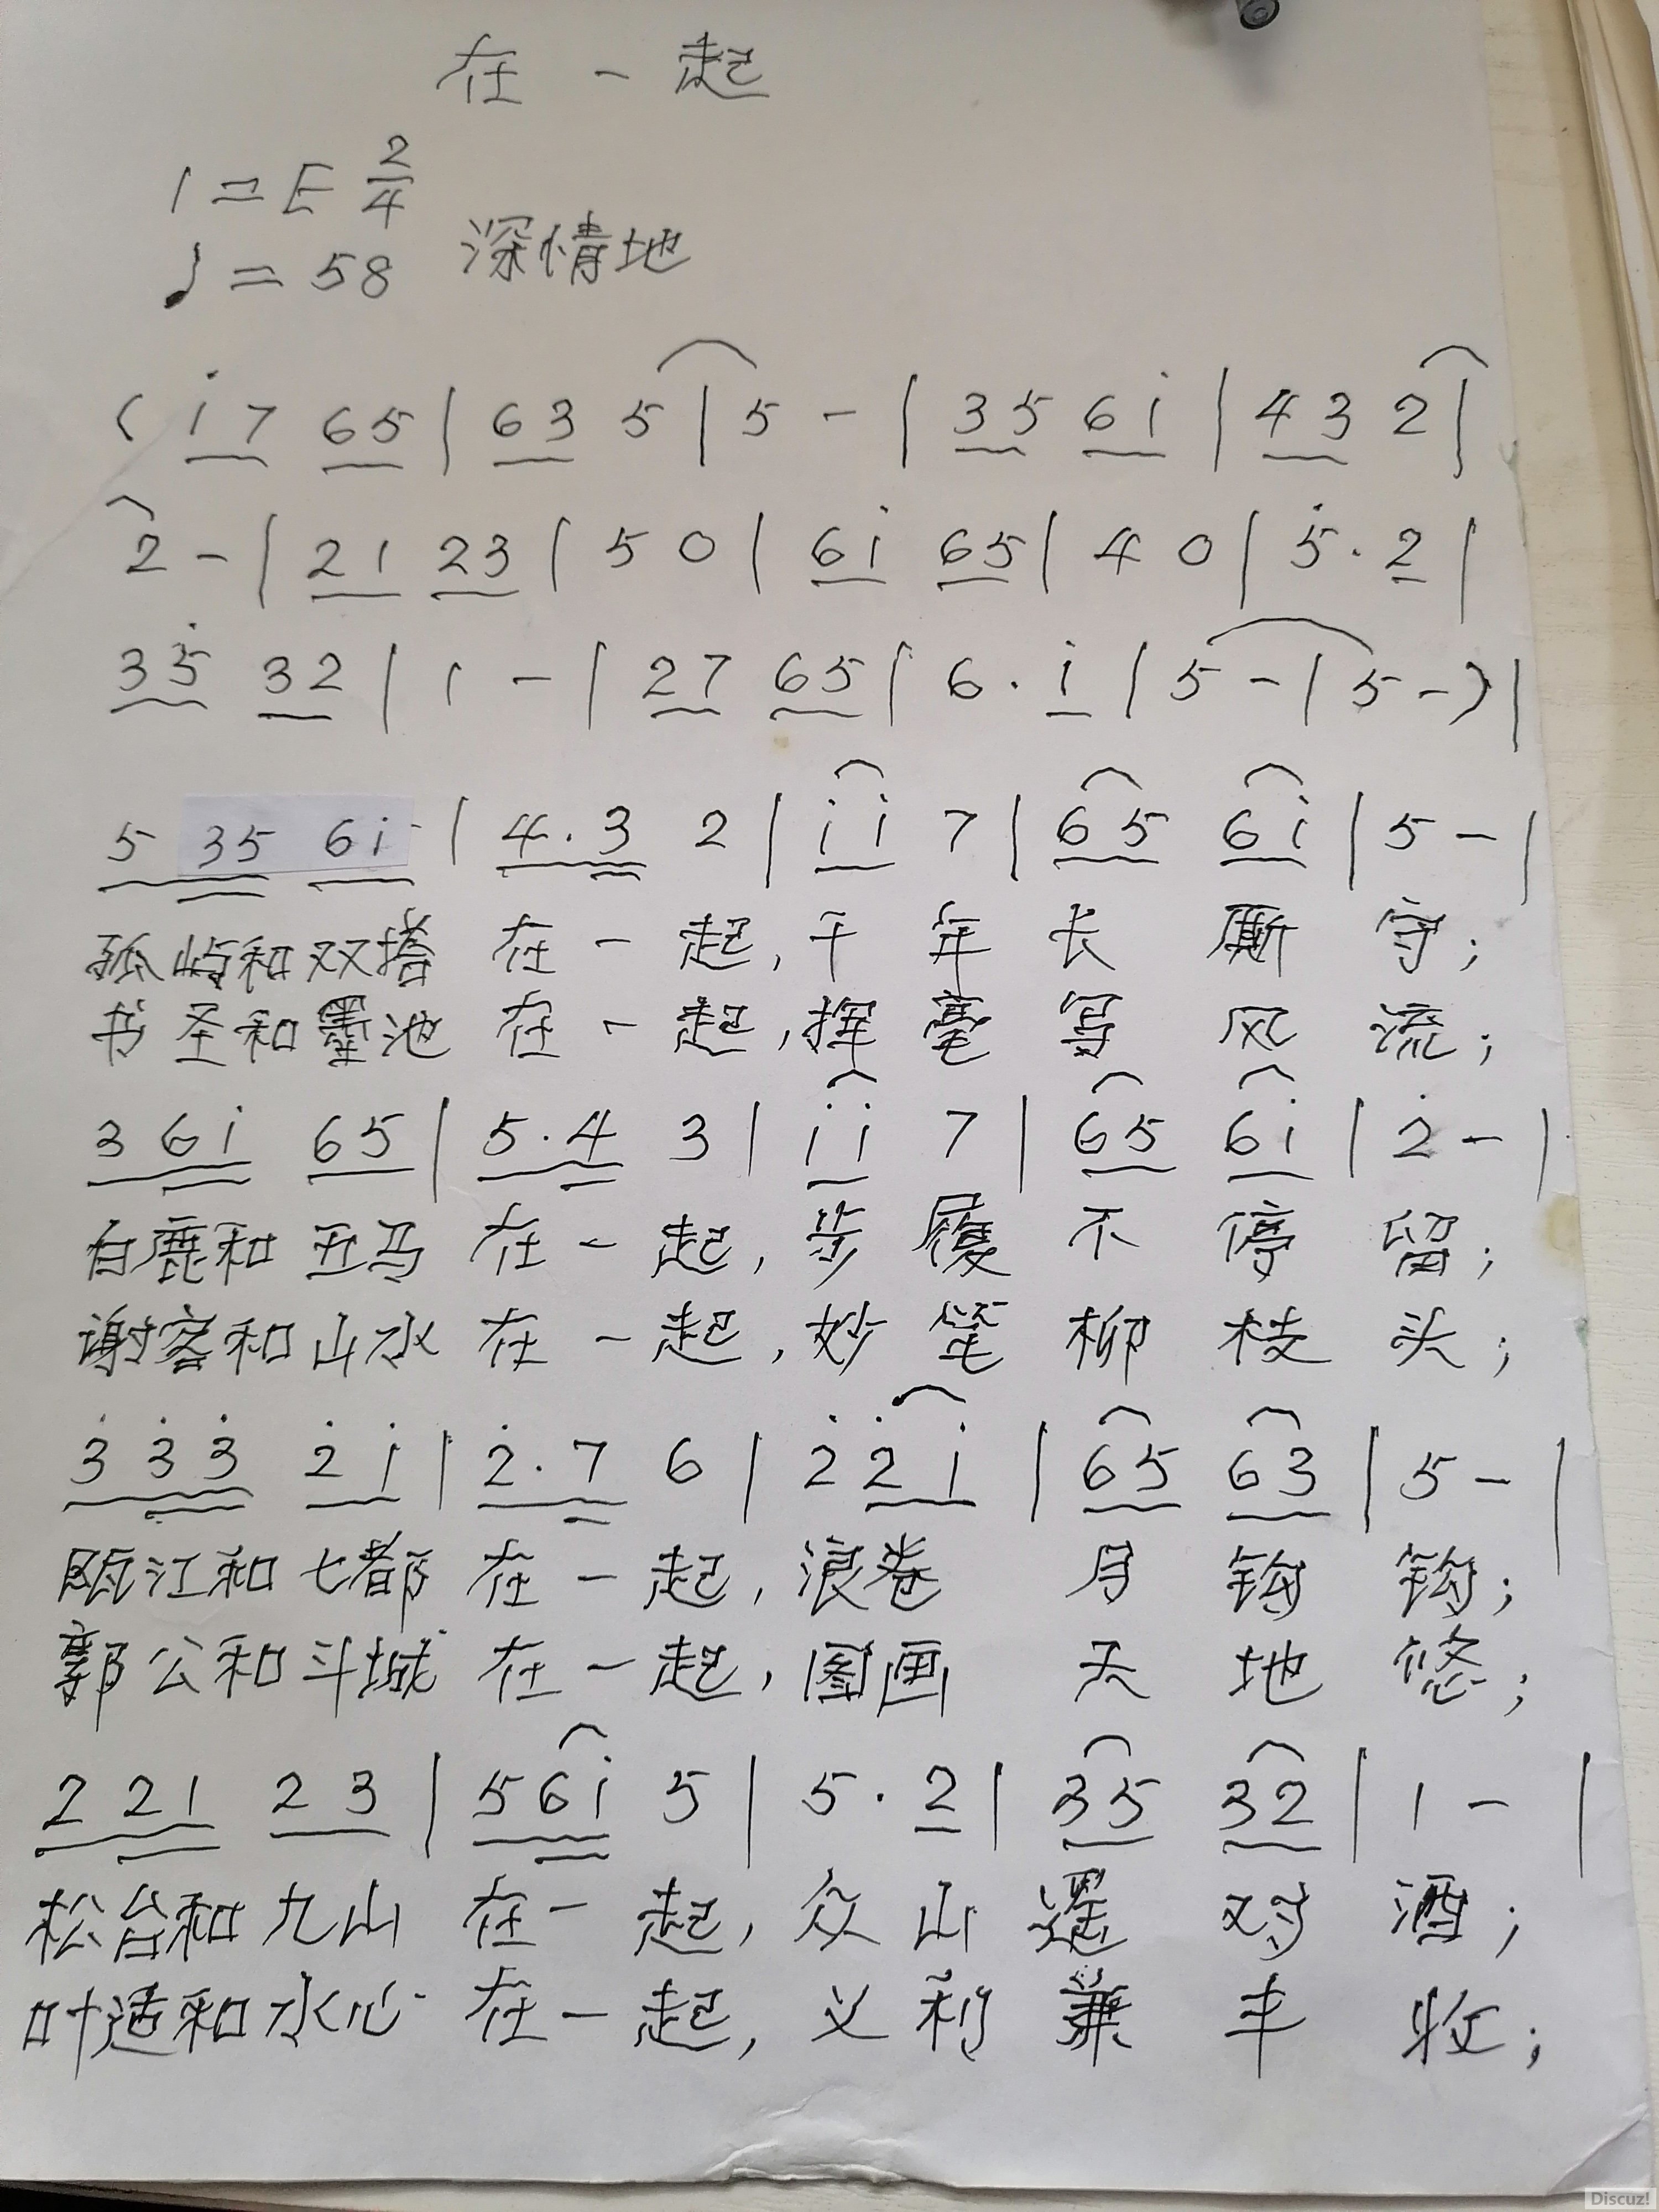 在一起
1=E 2/4
♩=58 深情地
( i̇7 65 | 63 5 | 5 - | 35 6i̇ | 43 2 |
2 - | 21 23 | 5 0 | 6i̇ 65 | 4 0 | 5̇· 2 |
35̇ 32 | 1 - | 27 65 | 6· i̇ | 5 - | 5 - ) |
5 35 6i̇ | 4·3 2 | i̇i̇ 7 | 65 6i̇ | 5 - |
孤屿和双塔 在一起,千年长厮守;
书圣和墨池 在一起,挥毫写风流;
3 6i̇ 65 | 5·4 3 | i̇i̇ 7 | 65 6i̇ | 2̇ - |
白鹿和五马 在一起,步履不停留;
谢客和山水 在一起,妙笔柳枝头;
3̇ 3̇3̇ 2̇i̇ | 2̇·7 6 | 2̇ 2̇i̇ | 65 63 | 5 - |
瓯江和七都 在一起,浪卷月钩钩;
郭公和斗城 在一起,图画天地悠;
2 21 23 | 5 6i̇ 5 | 5· 2 | 35 32 | 1 - |
松台和九山 在一起,众山遥对酒;
叶适和水心 在一起,义利兼丰收;
Discuz!